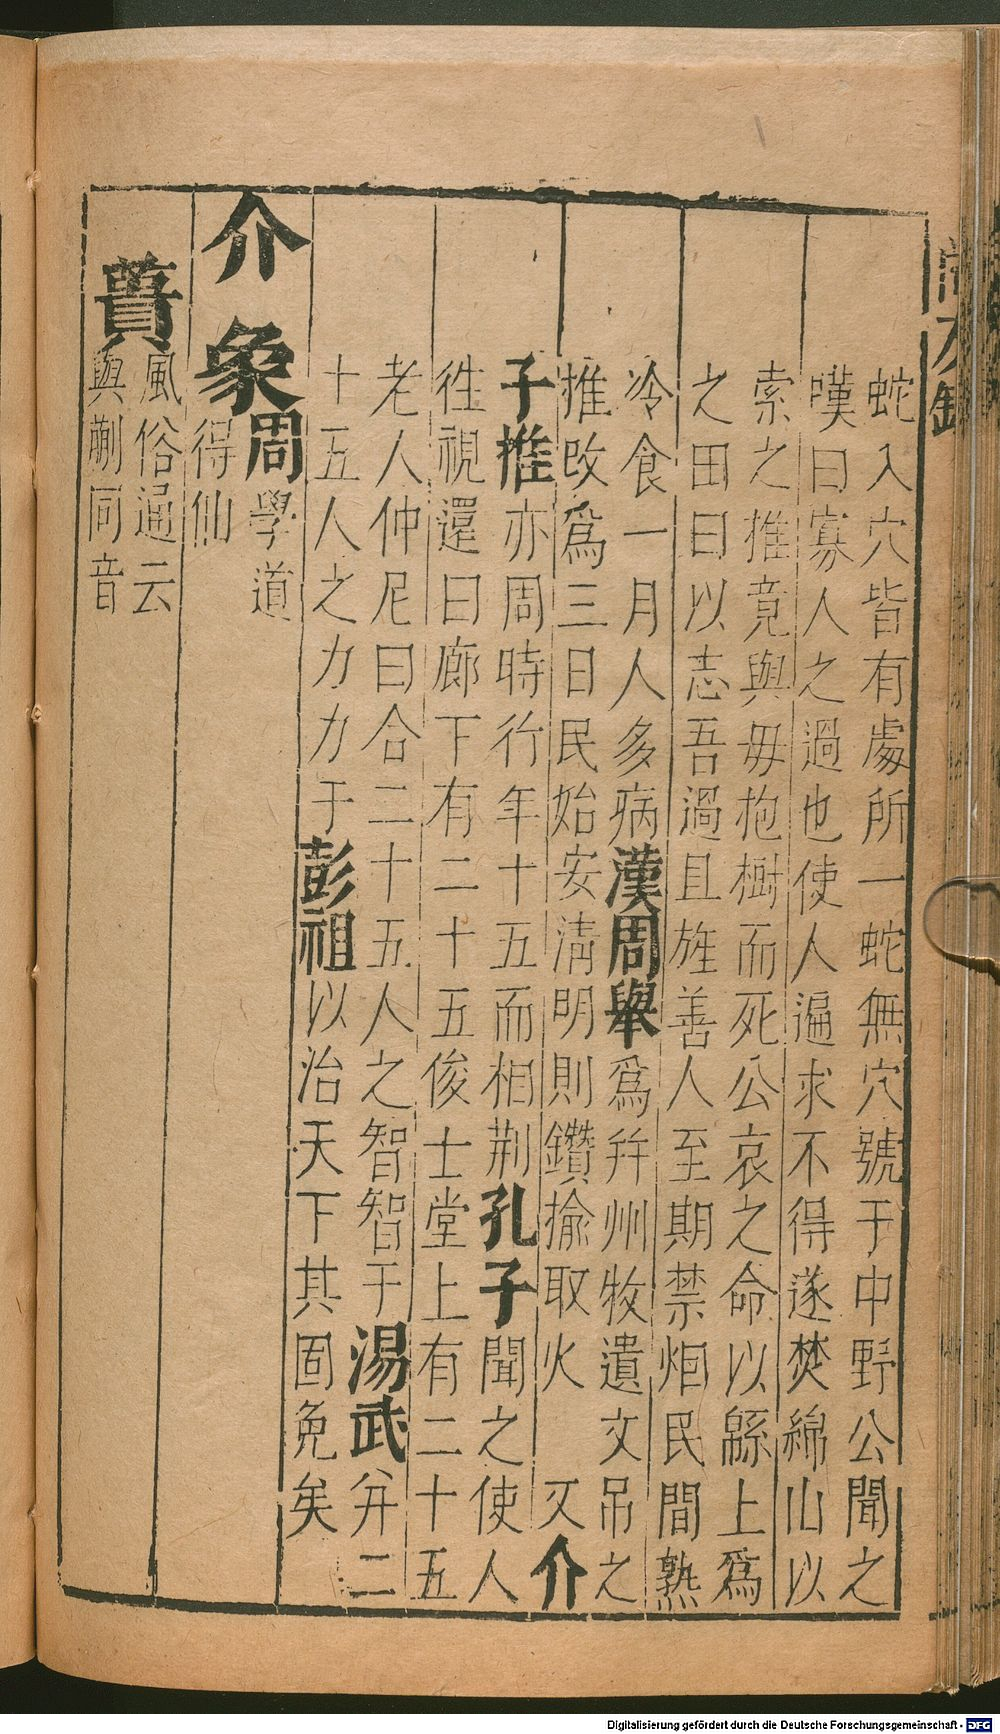 蛇入穴皆有處所一蛇無穴號于中野公聞之
嘆曰寡人之過也使人遍求不得遂焚綿山以
索之推竟與毋抱樹而死公哀之命以緜上爲
之田曰以志吾過且旌善人至期禁烟民間熟
冷食一月人多病漢周舉爲幷州牧遺文吊之
推改爲三日民始安淸明則鑽揄取火 又介
子推亦周時行年十五而相荆孔子聞之使人
徃視還曰廊下有二十五俊士堂上有二十五
老人仲尼曰合二十五人之智智于湯武幷二
十五人之力力于彭祖以治天下其固免矣
介象周學道
得仙
蕢風俗通云
與蒯同音
Digitalisierung gefördert durch die Deutsche Forschungsgemeinschaft - DFG